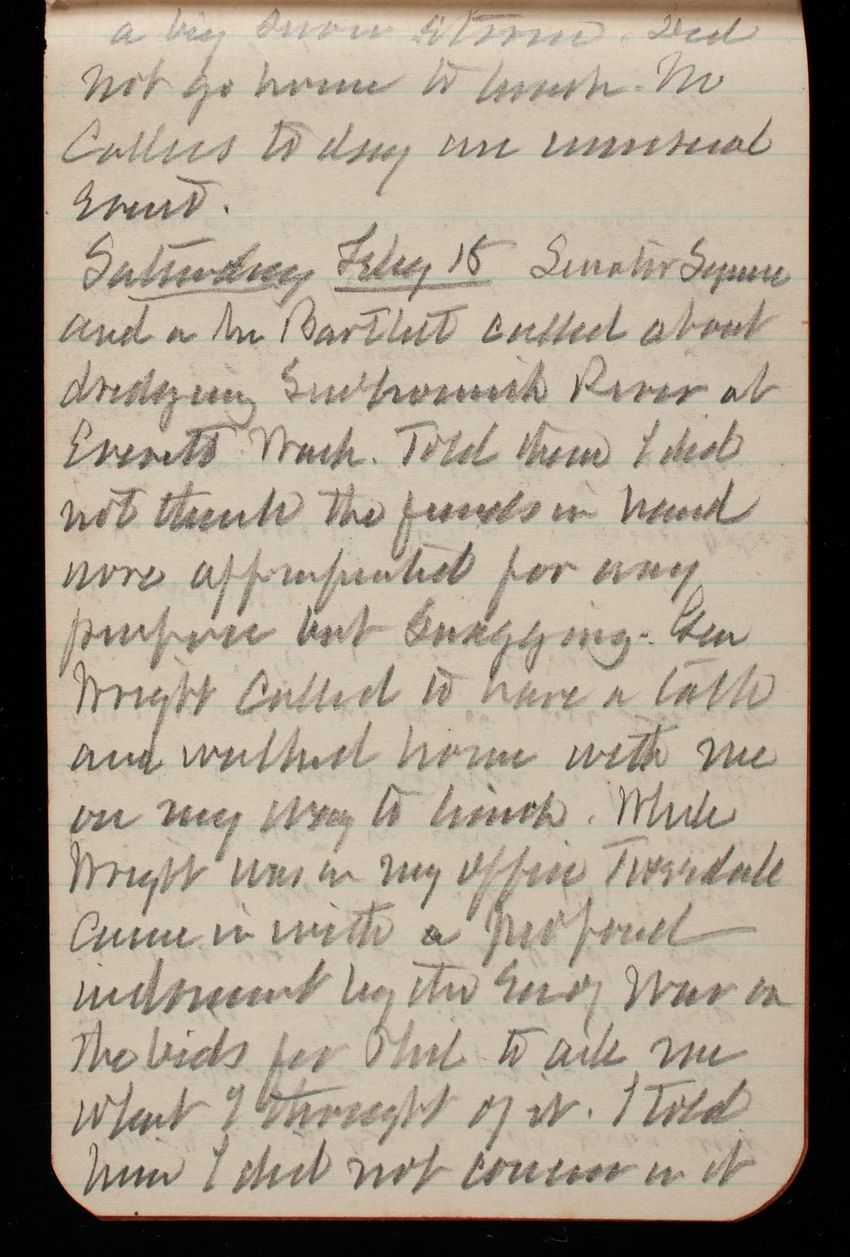 a big snow storm. Did
not go home to lunch. No
Callers to day an unusual
Event.
Saturday Feby 15 Senator Squire
and a Mr Bartlett called about
dredging Snohomish River at
Everett Wash. Told them I did
not think the funds in hand
were appropriated for any
purpose but Snagging. Gen
Wright Called to have a talk
and walked home with me
on my way to lunch. While
Wright was in my office Tweedale
Came in with a proposed
indorsement by the Secy War on
the bids for to ask me
what I thought of it. I told
him I did not concur in it